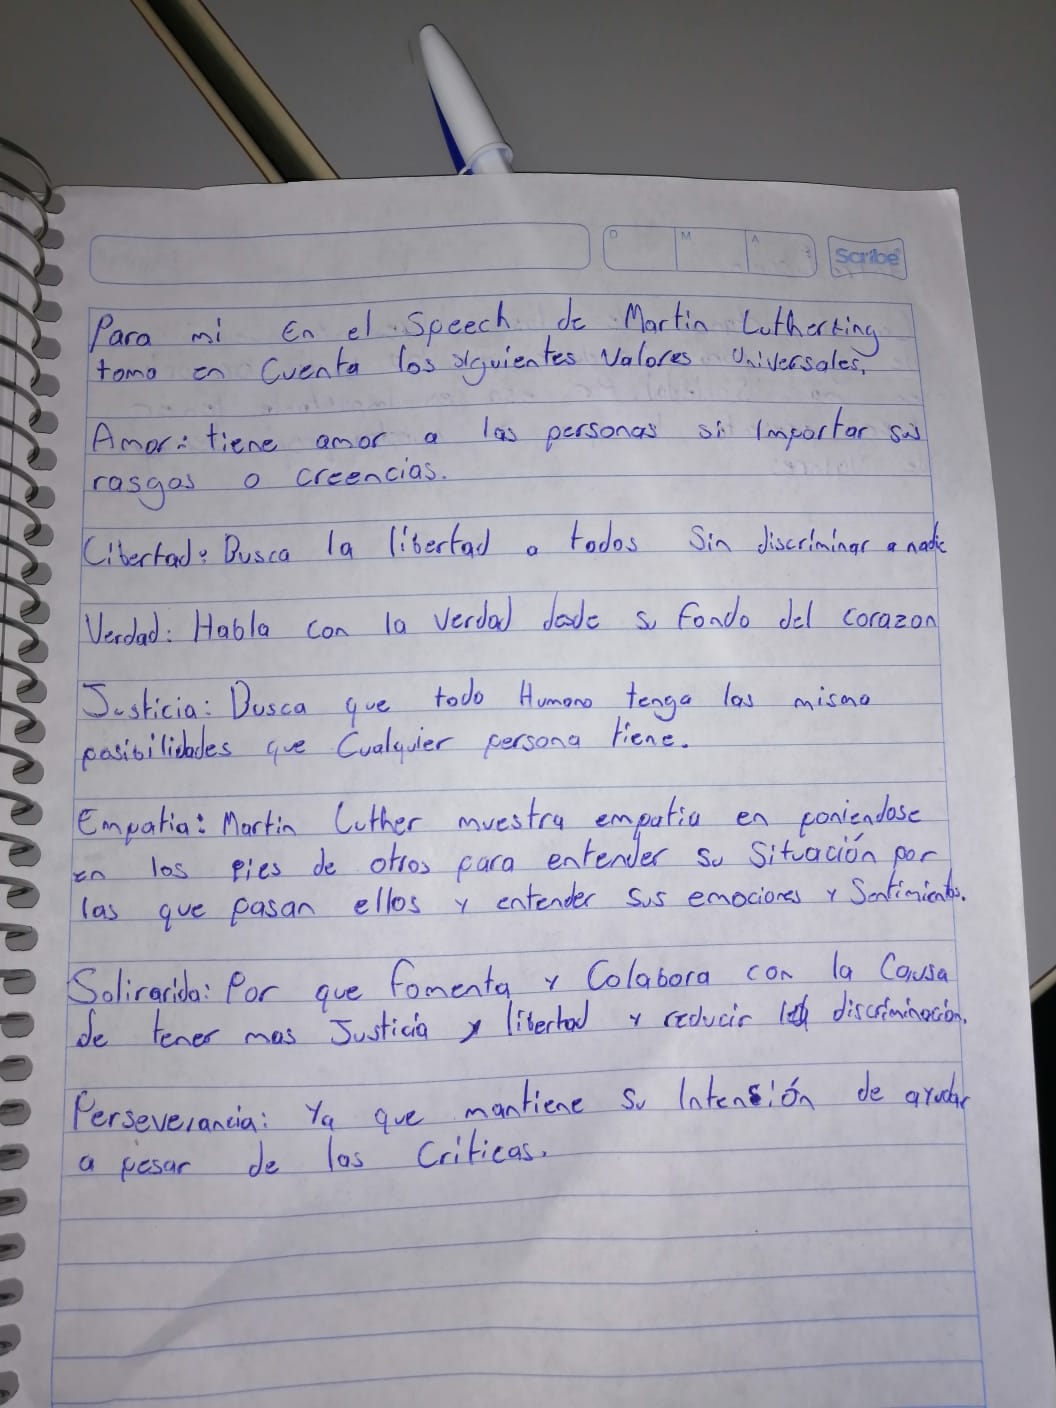 D M A
Scribe
Para mi En el Speech de Martin Lutherking
tomo en Cuenta los siguientes Valores Universales.
Amor: tiene amor a las personas si Importar sus
rasgos o creencias.
Libertad: Busca la libertad a todos Sin discriminar a nadie
Verdad: Habla con la Verdad desde su Fondo del corazon
Justicia: Busca que todo Humano tenga las misma
posibilidades que Cualquier persona tiene.
Empatia: Martin Luther muestra empatia en poniendose
en los pies de otros para entender su Situación por
las que pasan ellos y entender sus emociones y Sentimientos.
Solirarida: Por que fomenta y Colabora con la Causa
de tener mas Justicia y libertad y reducir la discriminación.
Perseverancia: Ya que mantiene su Intensión de ayudar
a pesar de las Criticas.